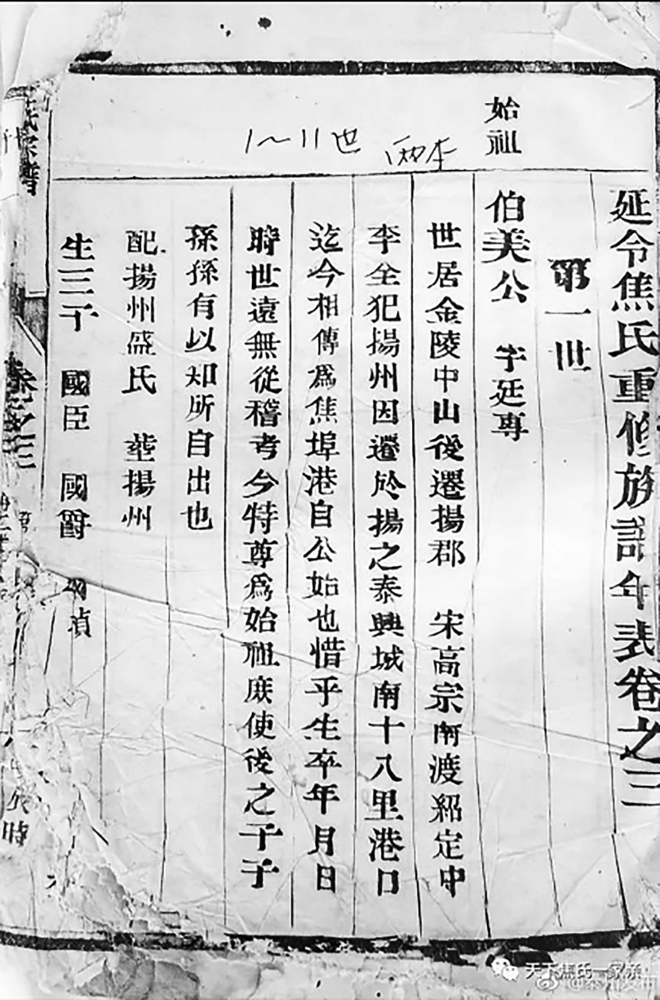 延令焦氏重修族譜年表卷之三
第一世
始祖
伯美公 字廷專
世居金陵中山後遷揚郡 宋高宗南渡紹定中
李全犯揚州因遷於揚之泰興城南十八里港口
迄今相傳爲焦埠港自公始也惜乎生卒年月日
時世遠無從稽考今特尊爲始祖庶使後之子子
孫孫有以知所自出也
配揚州盛氏 葬揚州
生三子 國臣 國爵 禎
1~11世 兩本
氏宗譜
卷之三
時
天下焦氏一家亲